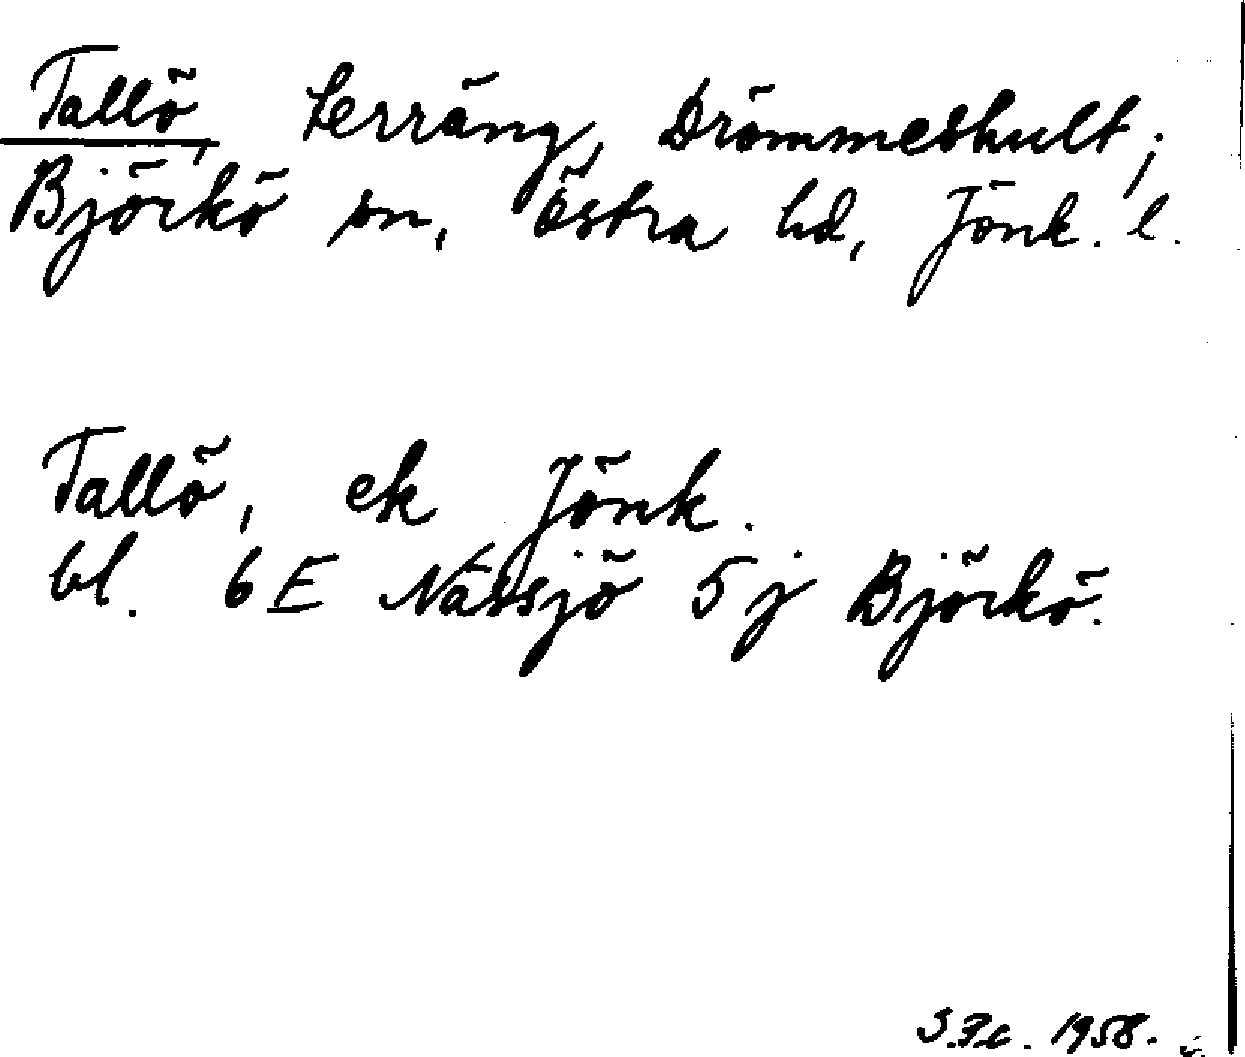 Tallö, terräng, Drömmeshult;
Björkö sn, Östra hd, Jönk. l.
Tallö, ek Jönk.
bl. 6 E Nässjö 5 j Björkö.
1958.